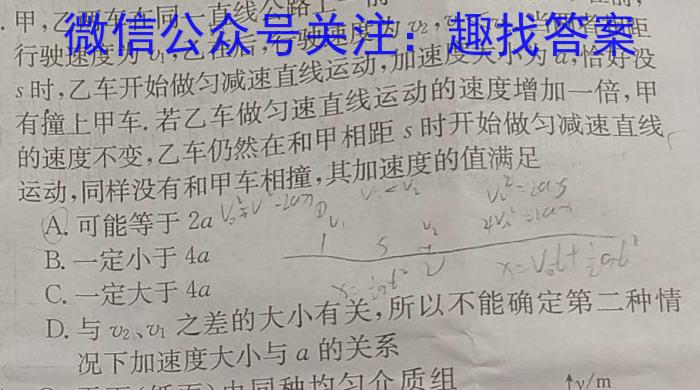 甲,乙两车在同一直线公路上
微信公众号关注：趣找答案
行驶速度为v₁,乙在后,行驶速度为v₂,
s时,乙车开始做匀减速直线运动,加速度大小为a,恰好没
有撞上甲车.若乙车做匀速直线运动的速度增加一倍,甲
的速度不变,乙车仍然在和甲相距s时开始做匀减速直线
运动,同样没有和甲车相撞,其加速度的值满足
A.可能等于2a
B.一定小于4a
C.一定大于4a
D.与v₂、v₁之差的大小有关,所以不能确定第二种情
况下加速度大小与a的关系
内同种均匀介质组
y/m
v₁
s
v₂
x=v₀t+½at²